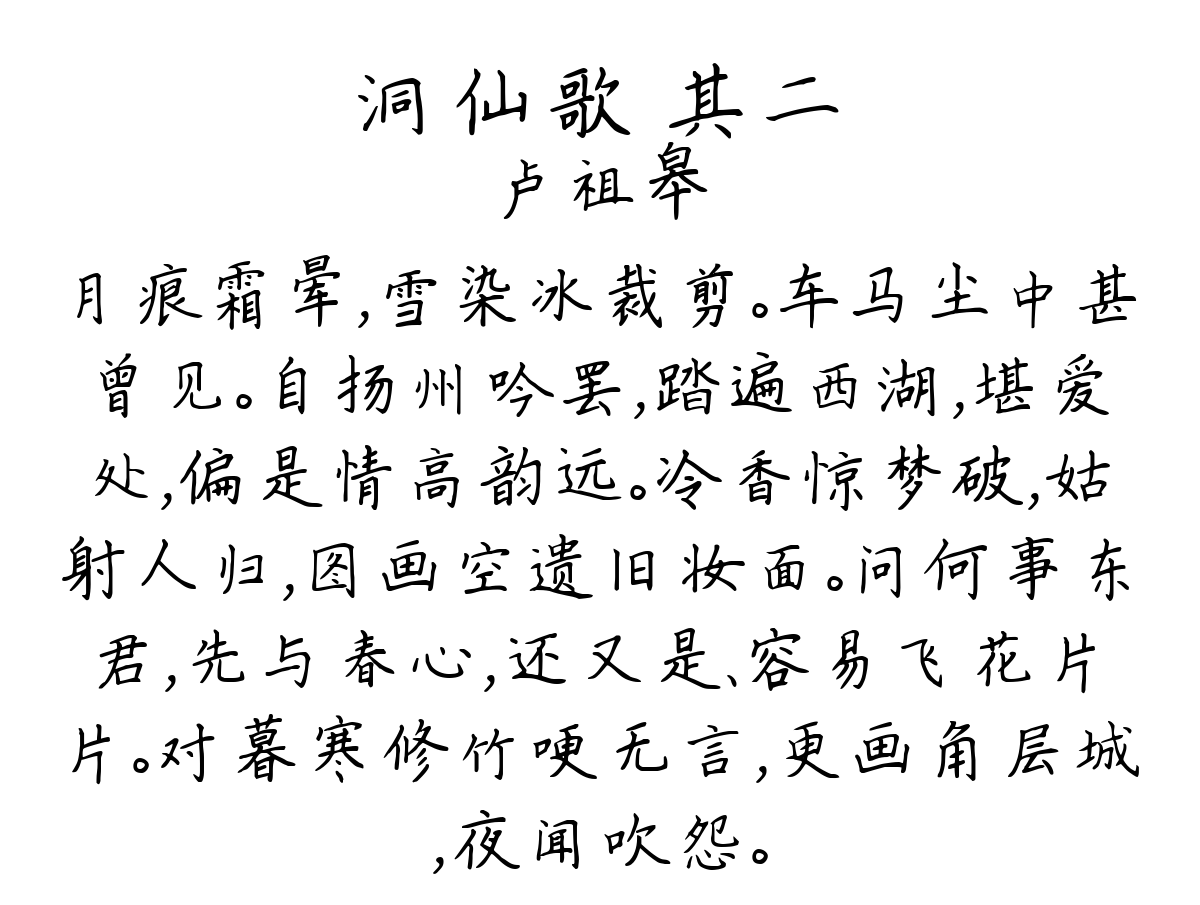 洞仙歌 其二
卢祖皋
月痕霜晕,雪染冰裁剪。车马尘中甚
曾见。自扬州吟罢,踏遍西湖,堪爱
处,偏是情高韵远。冷香惊梦破,姑
射人归,图画空遗旧妆面。问何事东
君,先与春心,还又是、容易飞花片
片。对暮寒修竹哽无言,更画角层城
,夜闻吹怨。